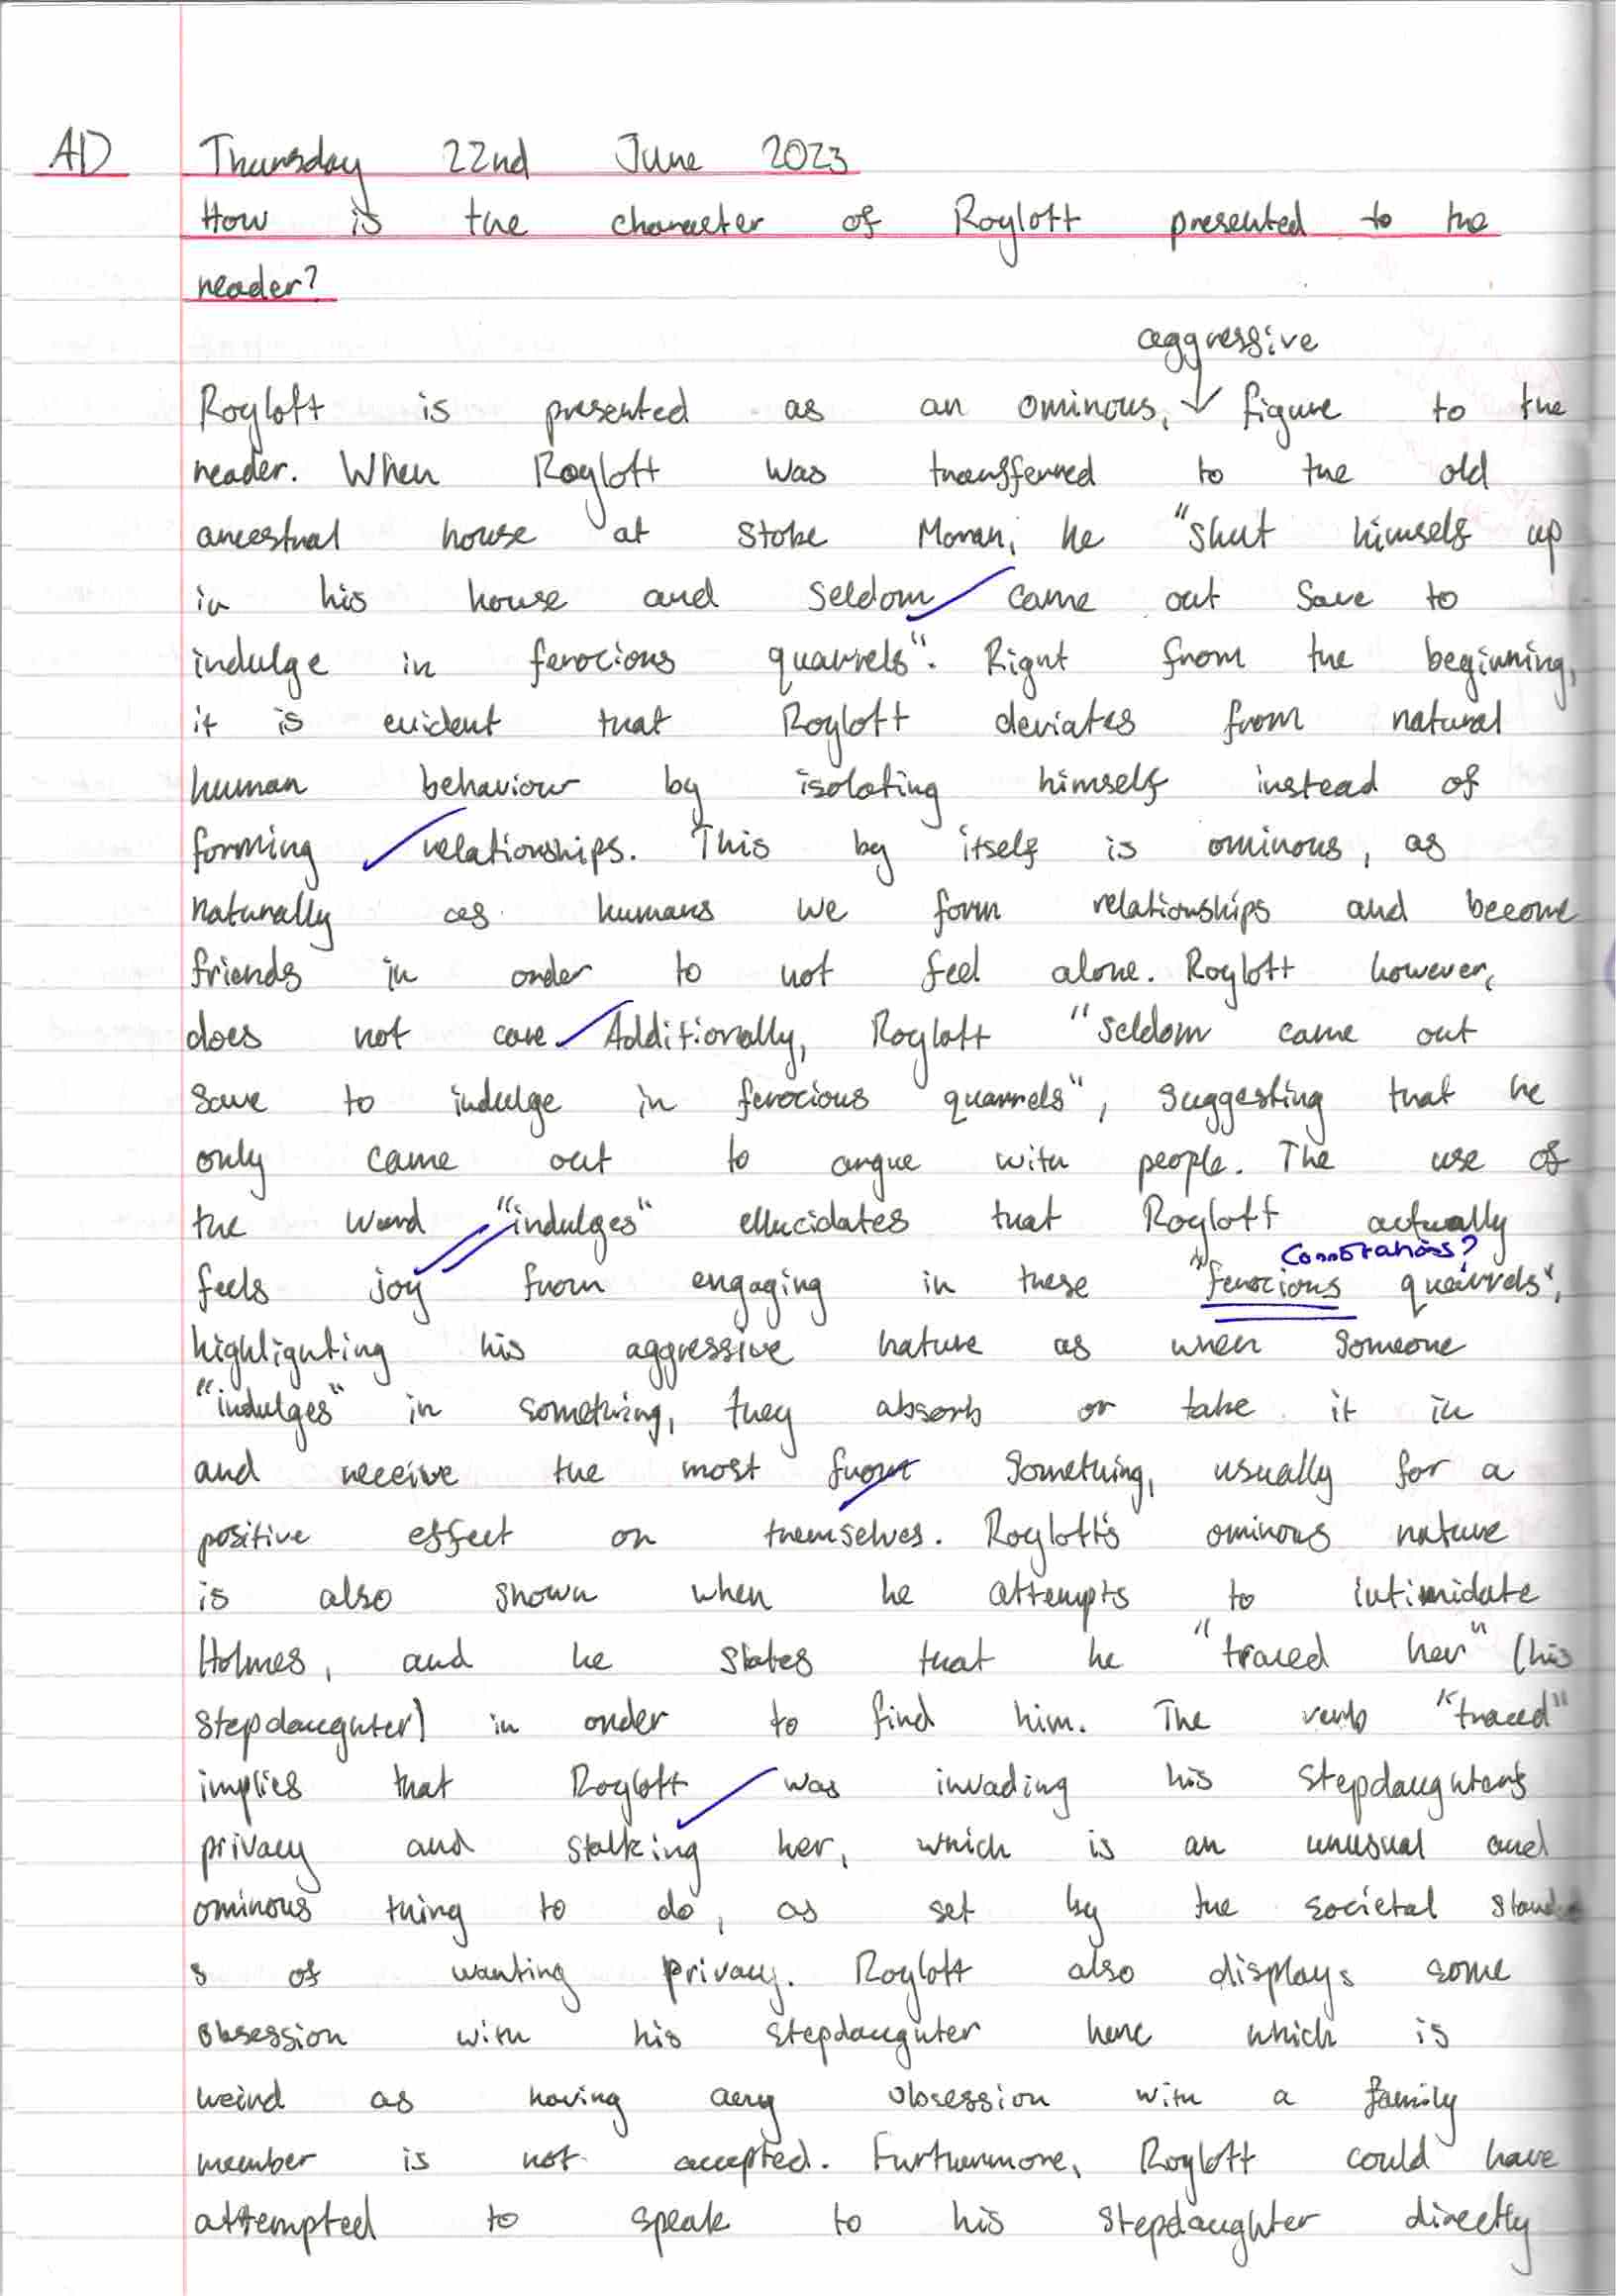 AD Thursday 22nd June 2023
How is the character of Roylott presented to the
reader?
aggressive
Roylott is presented as an ominous, ↓ figure to the
reader. When Roylott was transferred to the old
ancestral house at Stoke Moran, he "shut himself up
in his house and seldom came out save to
indulge in ferocious quarrels". Right from the beginning,
it is evident that Roylott deviates from natural
human behaviour by isolating himself instead of
forming relationships. This by itself is ominous, as
naturally as humans we form relationships and become
friends in order to not feel alone. Roylott however,
does not care. Additionally, Roylott "seldom came out
save to indulge in ferocious quarrels", suggesting that he
only came out to argue with people. The use of
the word "indulges" ellucidates that Roylott actually
Connotations?
feels joy from engaging in these "ferocious quarrels",
highlighting his aggressive nature as when someone
"indulges" in something, they absorb or take it in
and receive the most from something, usually for a
positive effect on themselves. Roylott's ominous nature
is also shown when he attempts to intimidate
Holmes, and he states that he "traced her" (his
stepdaughter) in order to find him. The verb "traced"
implies that Roylott was invading his stepdaughter's
privacy and stalking her, which is an unusual and
ominous thing to do, as set by the societal
s of wanting privacy. Roylott also displays some
obsession with his stepdaughter here which is
weird as having any obsession with a family
member is not accepted. Furthermore, Roylott could have
attempted to speak to his stepdaughter directly